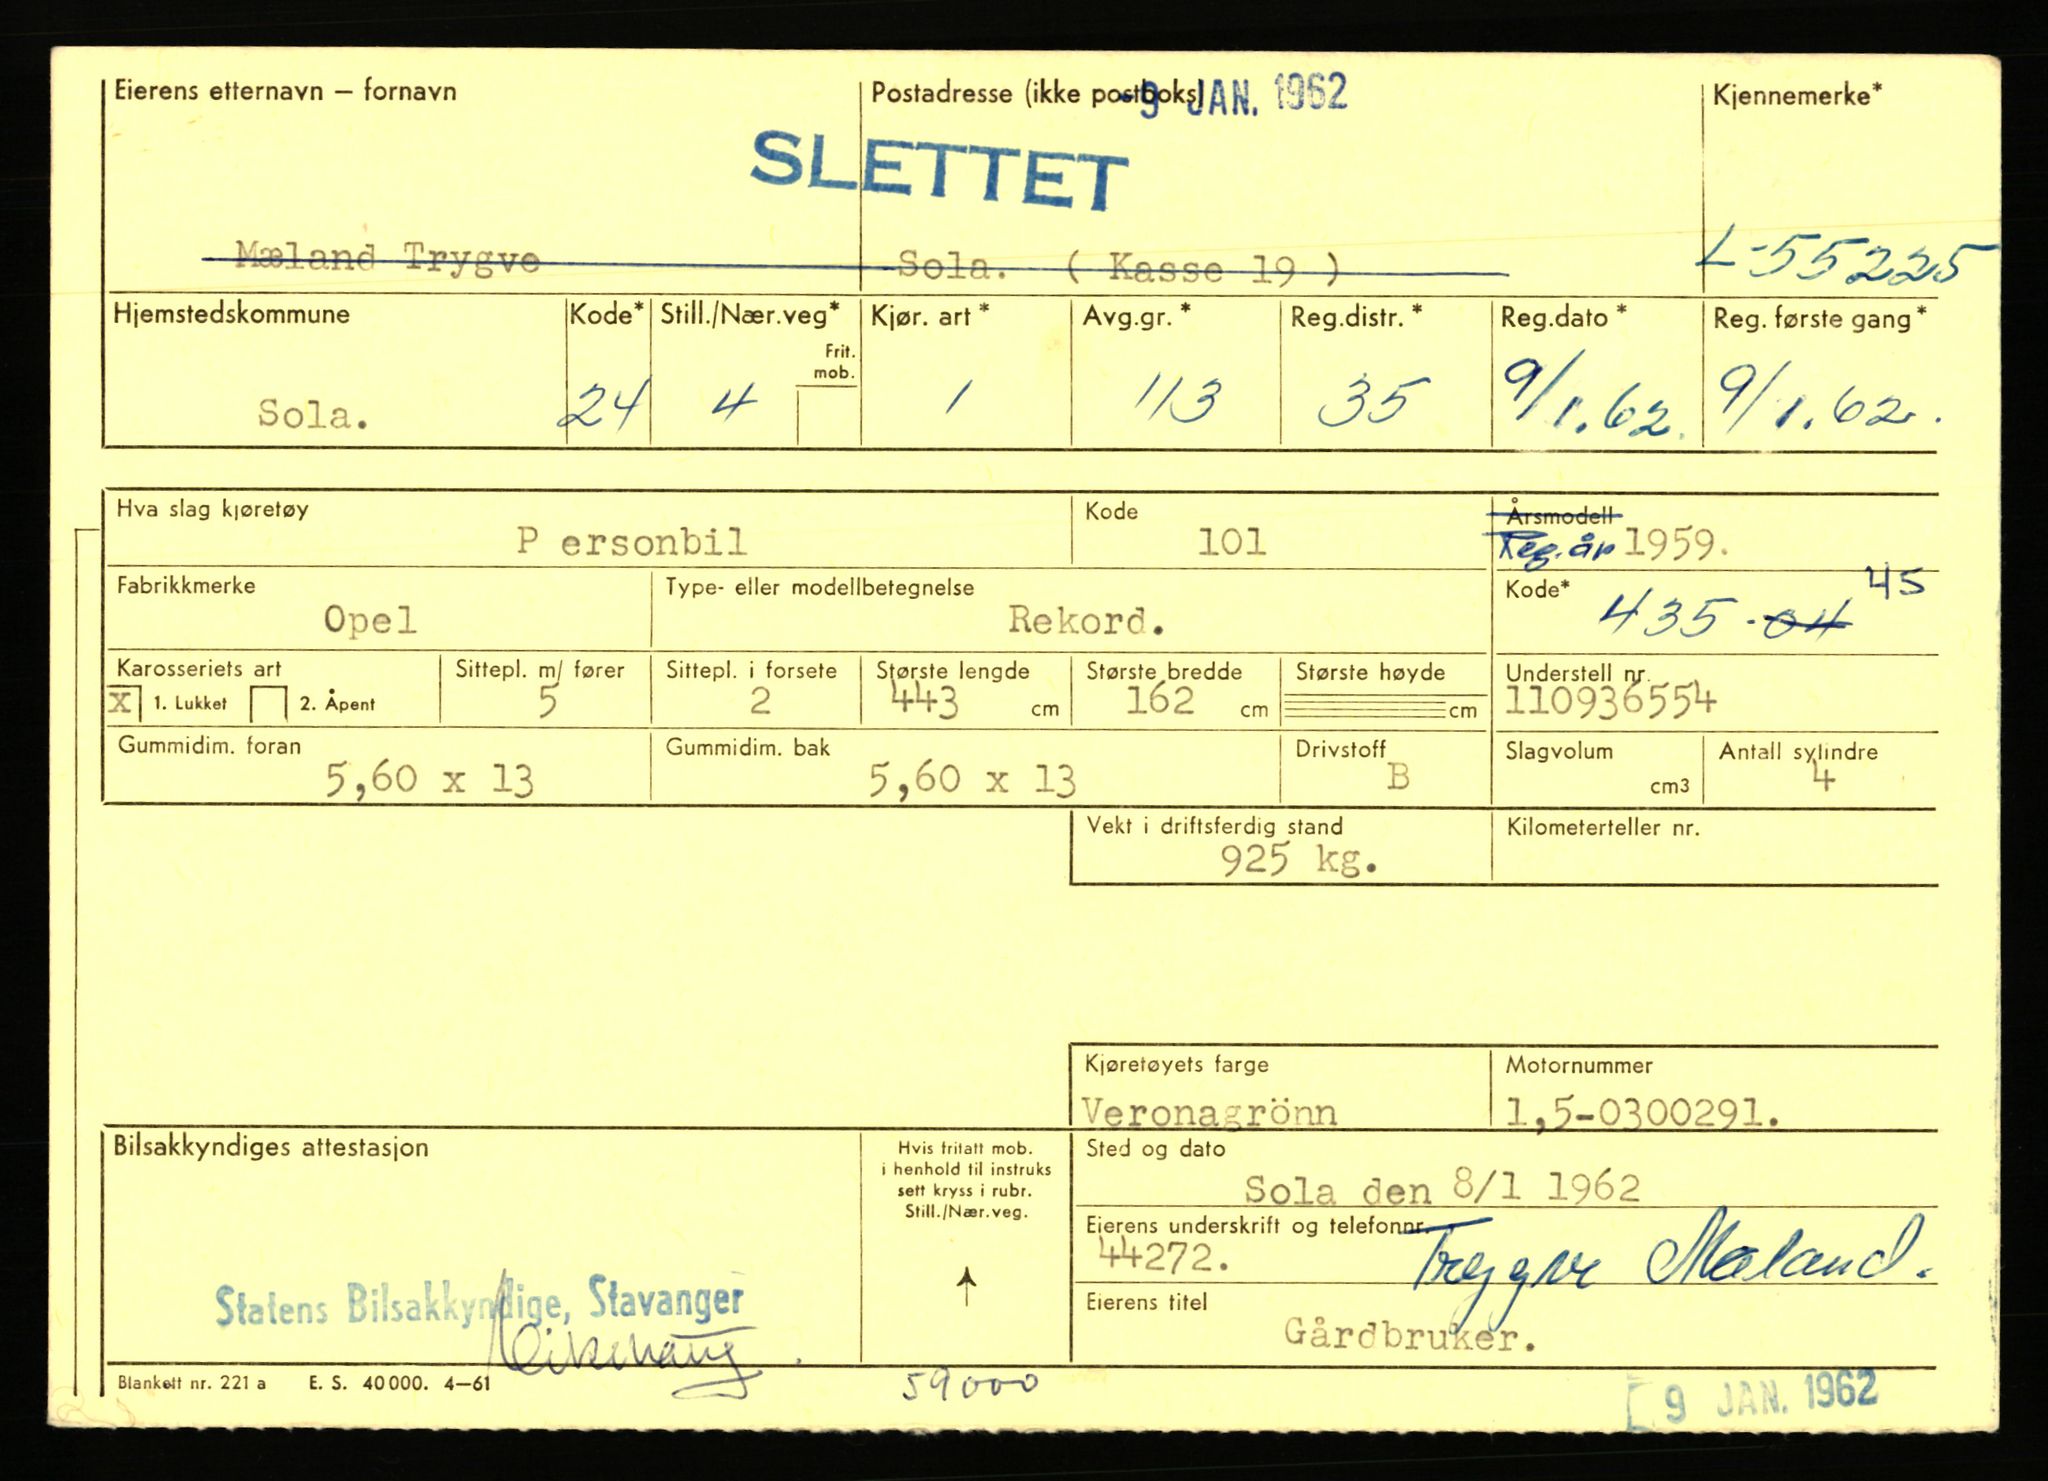 Eierens etternavn – fornavn
Postadresse (ikke postboks)
-9 JAN. 1962
Kjennemerke*
SLETTET
Mæland Trygve
Sola. ( Kasse 19 )
L-55225
Hjemstedskommune
Kode*
Still./Nær.veg*
Frit. mob.
Kjør. art*
Avg.gr.*
Reg.distr.*
Reg.dato*
Reg. første gang*
Sola.
24
4
1
113
35
9/1.62.
9/1.62.
Hva slag kjøretøy
Personbil
Kode
101
Årsmodell
Reg.år 1959.
Fabrikkmerke
Opel
Type- eller modellbetegnelse
Rekord.
Kode*
435-04 45
Karosseriets art
X 1. Lukket 2. Åpent
Sittepl. m/ fører
5
Sittepl. i forsete
2
Største lengde
443 cm
Største bredde
162 cm
Største høyde
cm
Understell nr.
110936554
Gummidim. foran
5,60 x 13
Gummidim. bak
5,60 x 13
Drivstoff
B
Slagvolum
cm3
Antall sylindre
4
Vekt i driftsferdig stand
925 kg.
Kilometerteller nr.
Kjøretøyets farge
Veronagrönn
Motornummer
1,5-0300291.
Bilsakkyndiges attestasjon
Hvis fritatt mob.
i henhold til instruks
sett kryss i rubr.
Still./Nær.veg.
Sted og dato
Sola den 8/1 1962
Eierens underskrift og telefonnr.
44272. Trygve Mæland.
Statens Bilsakkyndige, Stavanger
Eierens titel
Gårdbruker.
Blankett nr. 221 a E. S. 40000. 4–61
59000
9 JAN. 1962